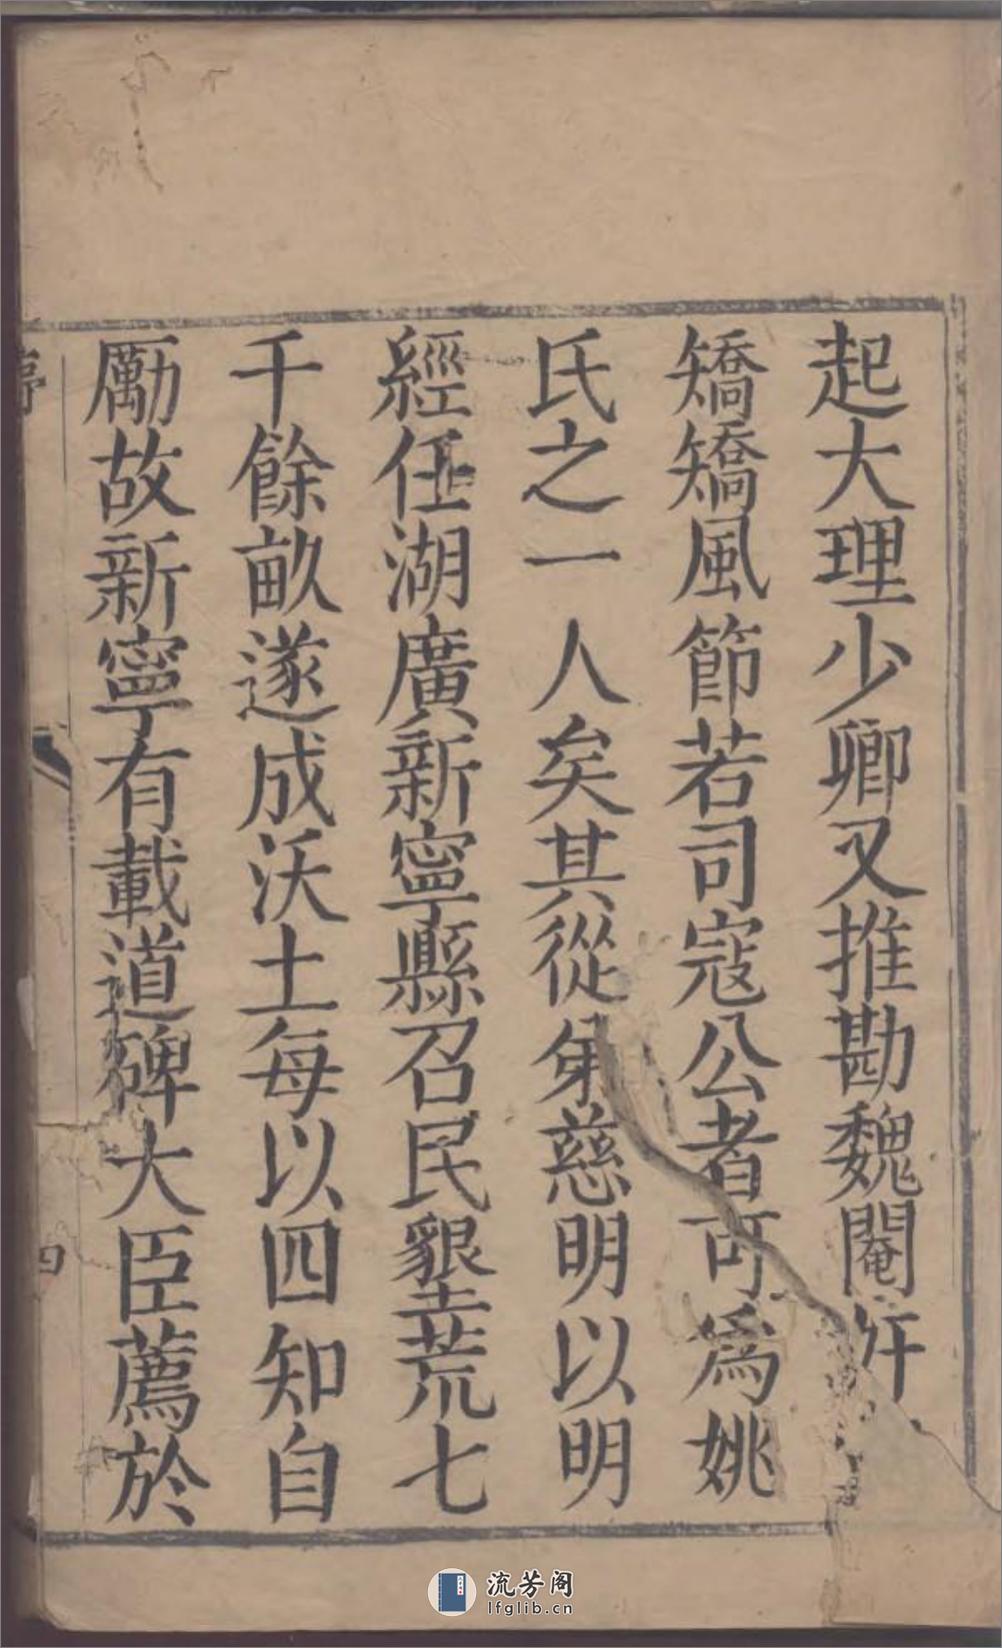 起大理少卿又推勘魏閹奸
矯矯風節若司寇公者可爲姚
氏之一人矣其從弟慈明以明
經任湖廣新寧縣召民墾荒七
千餘畝遂成沃土每以四知自
勵故新寧有載道碑大臣薦於
四
流芳阁
lfglib.cn